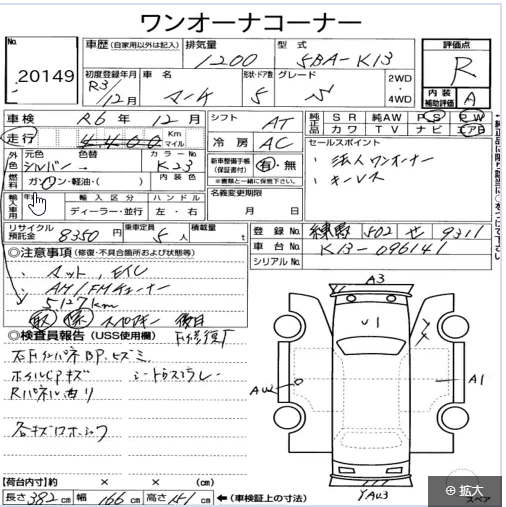 ワンオーナコーナー
No. 20149
車歴 (自家用以外は記入)
排気量 1200
型式 5BA-K13
評価点 R
内装補助評価 A
初度登録年月 R3/12月
車名 マーチ
形状・ドア数 5
グレード S
2WD・4WD
車検 R6年12月
シフト AT
純正品 SR 純AW PS PW
カワ TV ナビ エアB
走行 4400 Km マイル
冷房 AC
セールスポイント
・法人ワンオーナー
・キーレス
外色 元色 シルバー 色替 カラーNo. K23
新車整備手帳(保証書付) 有・無
※書類と一緒に保管下さい。
燃料 ガソリン・軽油・( ) 内装色
名義変更期限 月 日
輸入車用 年 輸入区分 ディーラー・並行 ハンドル 左・右
リサイクル預託金 8350円
乗車定員 5人
積載量 t
登録No. 練馬 502 せ 9311
車台No. K13-096141
シリアルNo.
◎注意事項(修復・不具合箇所および状態等)
・マット、ETC
・AM/FMチューナー
5127km
取 保 スペアキー 後日
F修復有
◎検査員報告(USS使用欄)
ホイルCPキズ シートカスレ
Rパネル曲り
各キズ
A3
U1
A1
YAU3
スペア
【荷台内寸】約 × × (cm)
長さ 382 cm 幅 166 cm 高さ 151 cm ←(車検証上の寸法)
拡大